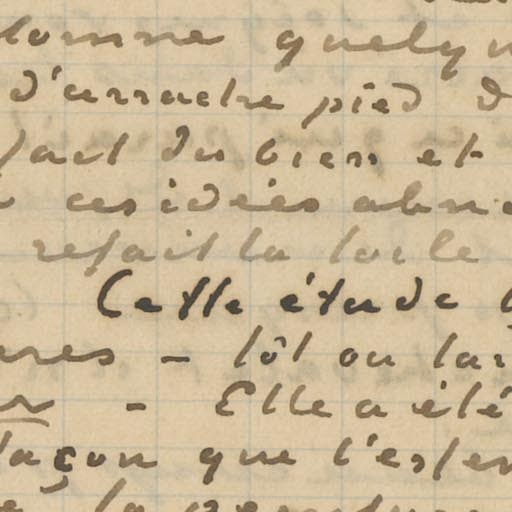 donne quelqu
d'arrache pied d
fait du bien et
ces idées abn
refait la toile
Cette étude
ures - tôt ou tar
- Elle a été
façon que l'es
la